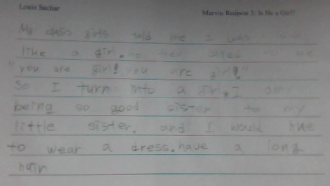 Louis Sachar Marvin Redpost 3: Is He a Girl?
My class girls told me I was
like a girl. to me
"you are girl! you are girl!"
So I turn into a girl. I am
being so good sister to my
little sister. and I would like
to wear a dress. have a long
hair